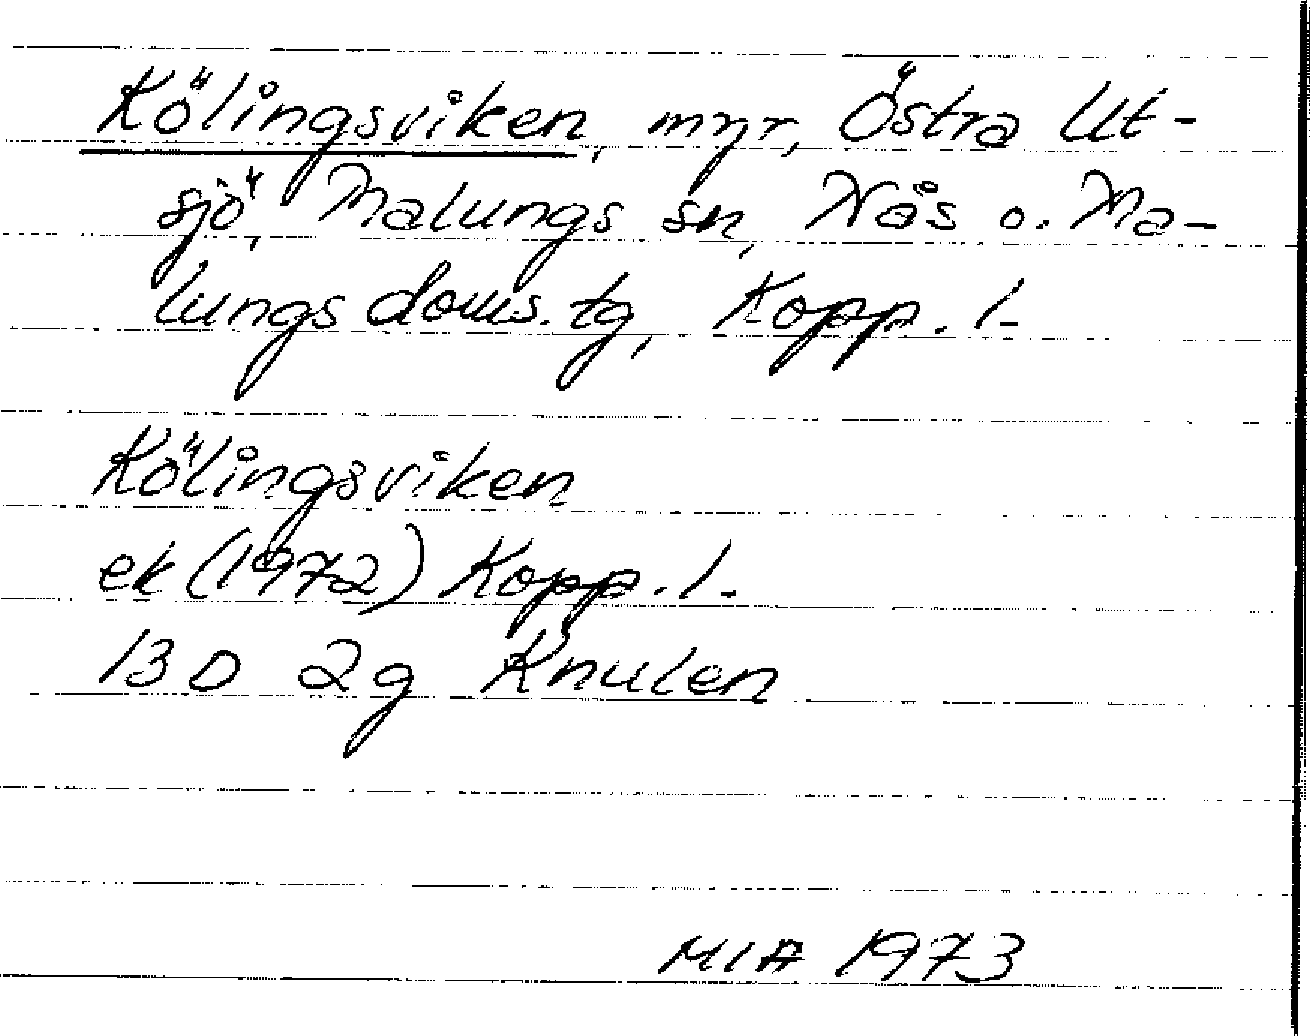 Kölingsviken, myr, Östra Ut-
sjö, Malungs sn, Nås o. Ma-
lungs doms. tg, Kopp. l.
Kölingsviken
ek (1972) Kopp. l.
13D 2g Knulen
MIA 1973